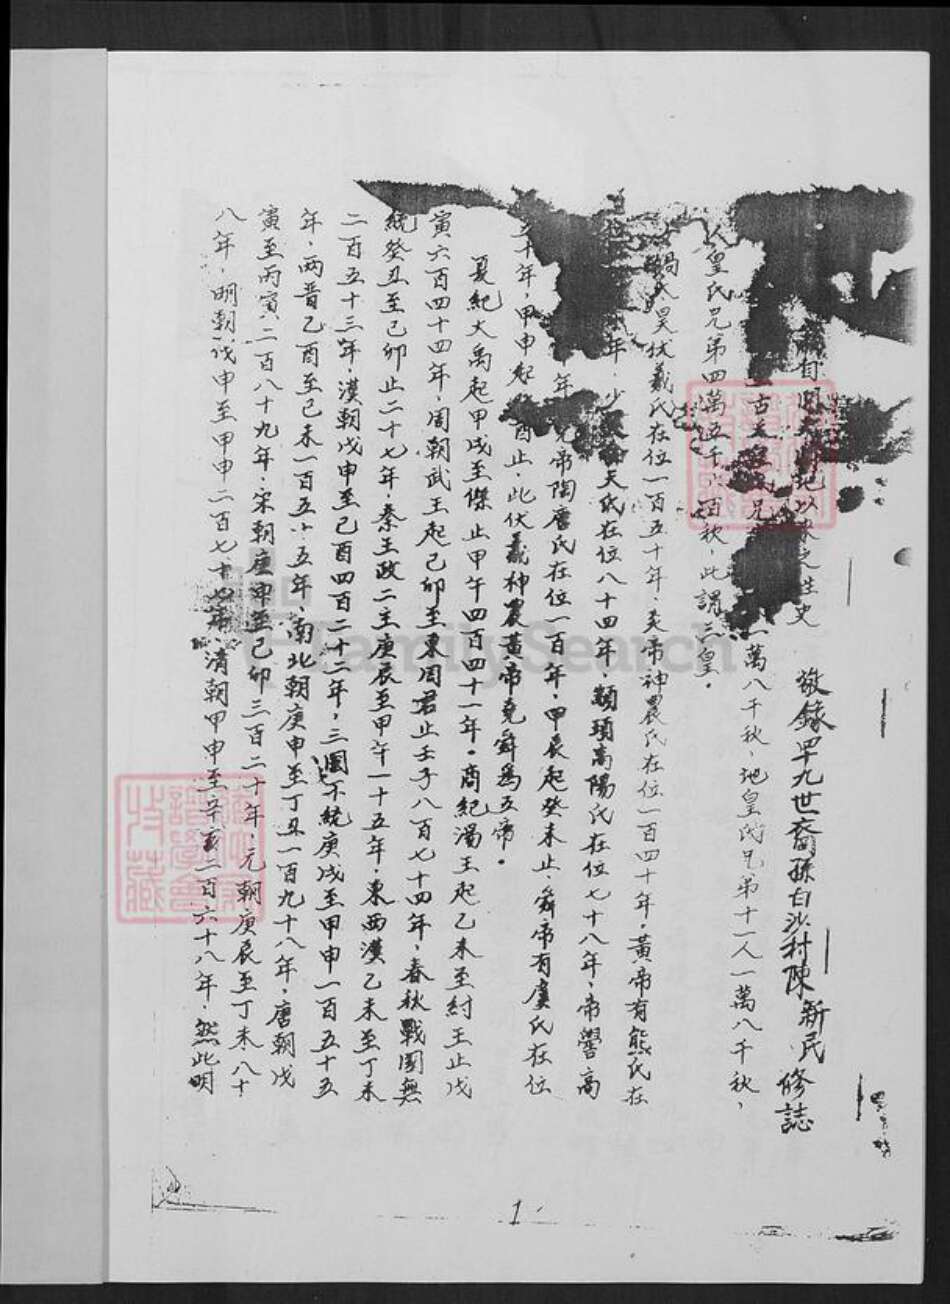 有開天闢地以來之性史 敬錄四十九世裔孫白沙村陳新民修誌
古天皇氏兄 一萬八千秋,地皇氏兄弟十一人一萬八千秋,
人皇氏兄弟四萬五千六百秋,此謂三皇。
媧氏昊伏羲氏在位一百五十年,炎帝神農氏在位一百四十年,黃帝有熊氏在
年,少 天氏在位八十四年,顓頊高陽氏在位七十八年,帝嚳高
年,堯帝陶唐氏在位一百年,甲辰起癸未止,舜帝有虞氏在位
十年,甲申起 酉止,此伏羲神農黃帝堯舜為五帝。
夏紀大禹起甲戌至傑止甲午四百四十一年。商紀湯王起乙未至紂王止戊
寅六百四十四年,周朝武王起己卯至東周君止壬子八百七十四年,春秋戰國無
統癸丑至己卯止二十七年,秦王政二主庚辰至甲午一十五年,東西漢乙未至丁未
二百五十三年,漢朝戊申至己酉四百二十二年,三國不統庚戌至甲申一百五十五
年,兩晉乙酉至己未一百五十五年,南北朝庚申至丁丑一百九十八年,唐朝戊
寅至丙寅二百八十九年,宋朝庚申至己卯三百二十年,元朝庚辰至丁未八十
八年,明朝戊申至甲申二百七十七年,清朝甲申至辛亥二百六十八年 然此明
1
FamilySearch